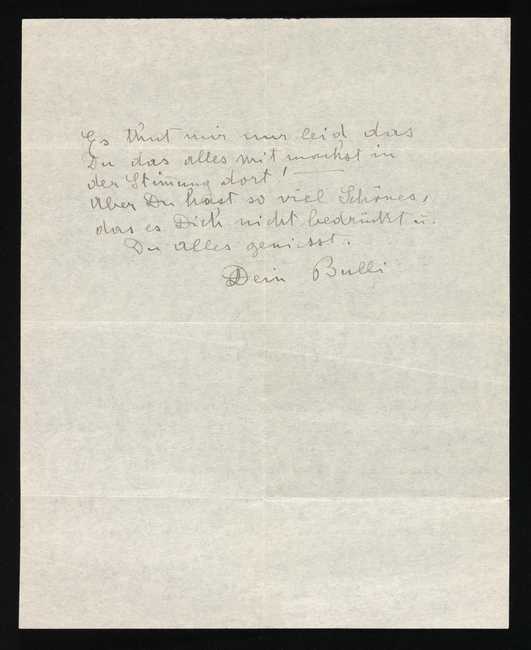 Es thut mir nur leid, das
Du das alles mit machst in
der Stimmung dort! —
Aber Du hast so viel Schönes,
das es Dich nicht bedrückt u.
Du alles geniesst.
Dein Bulli